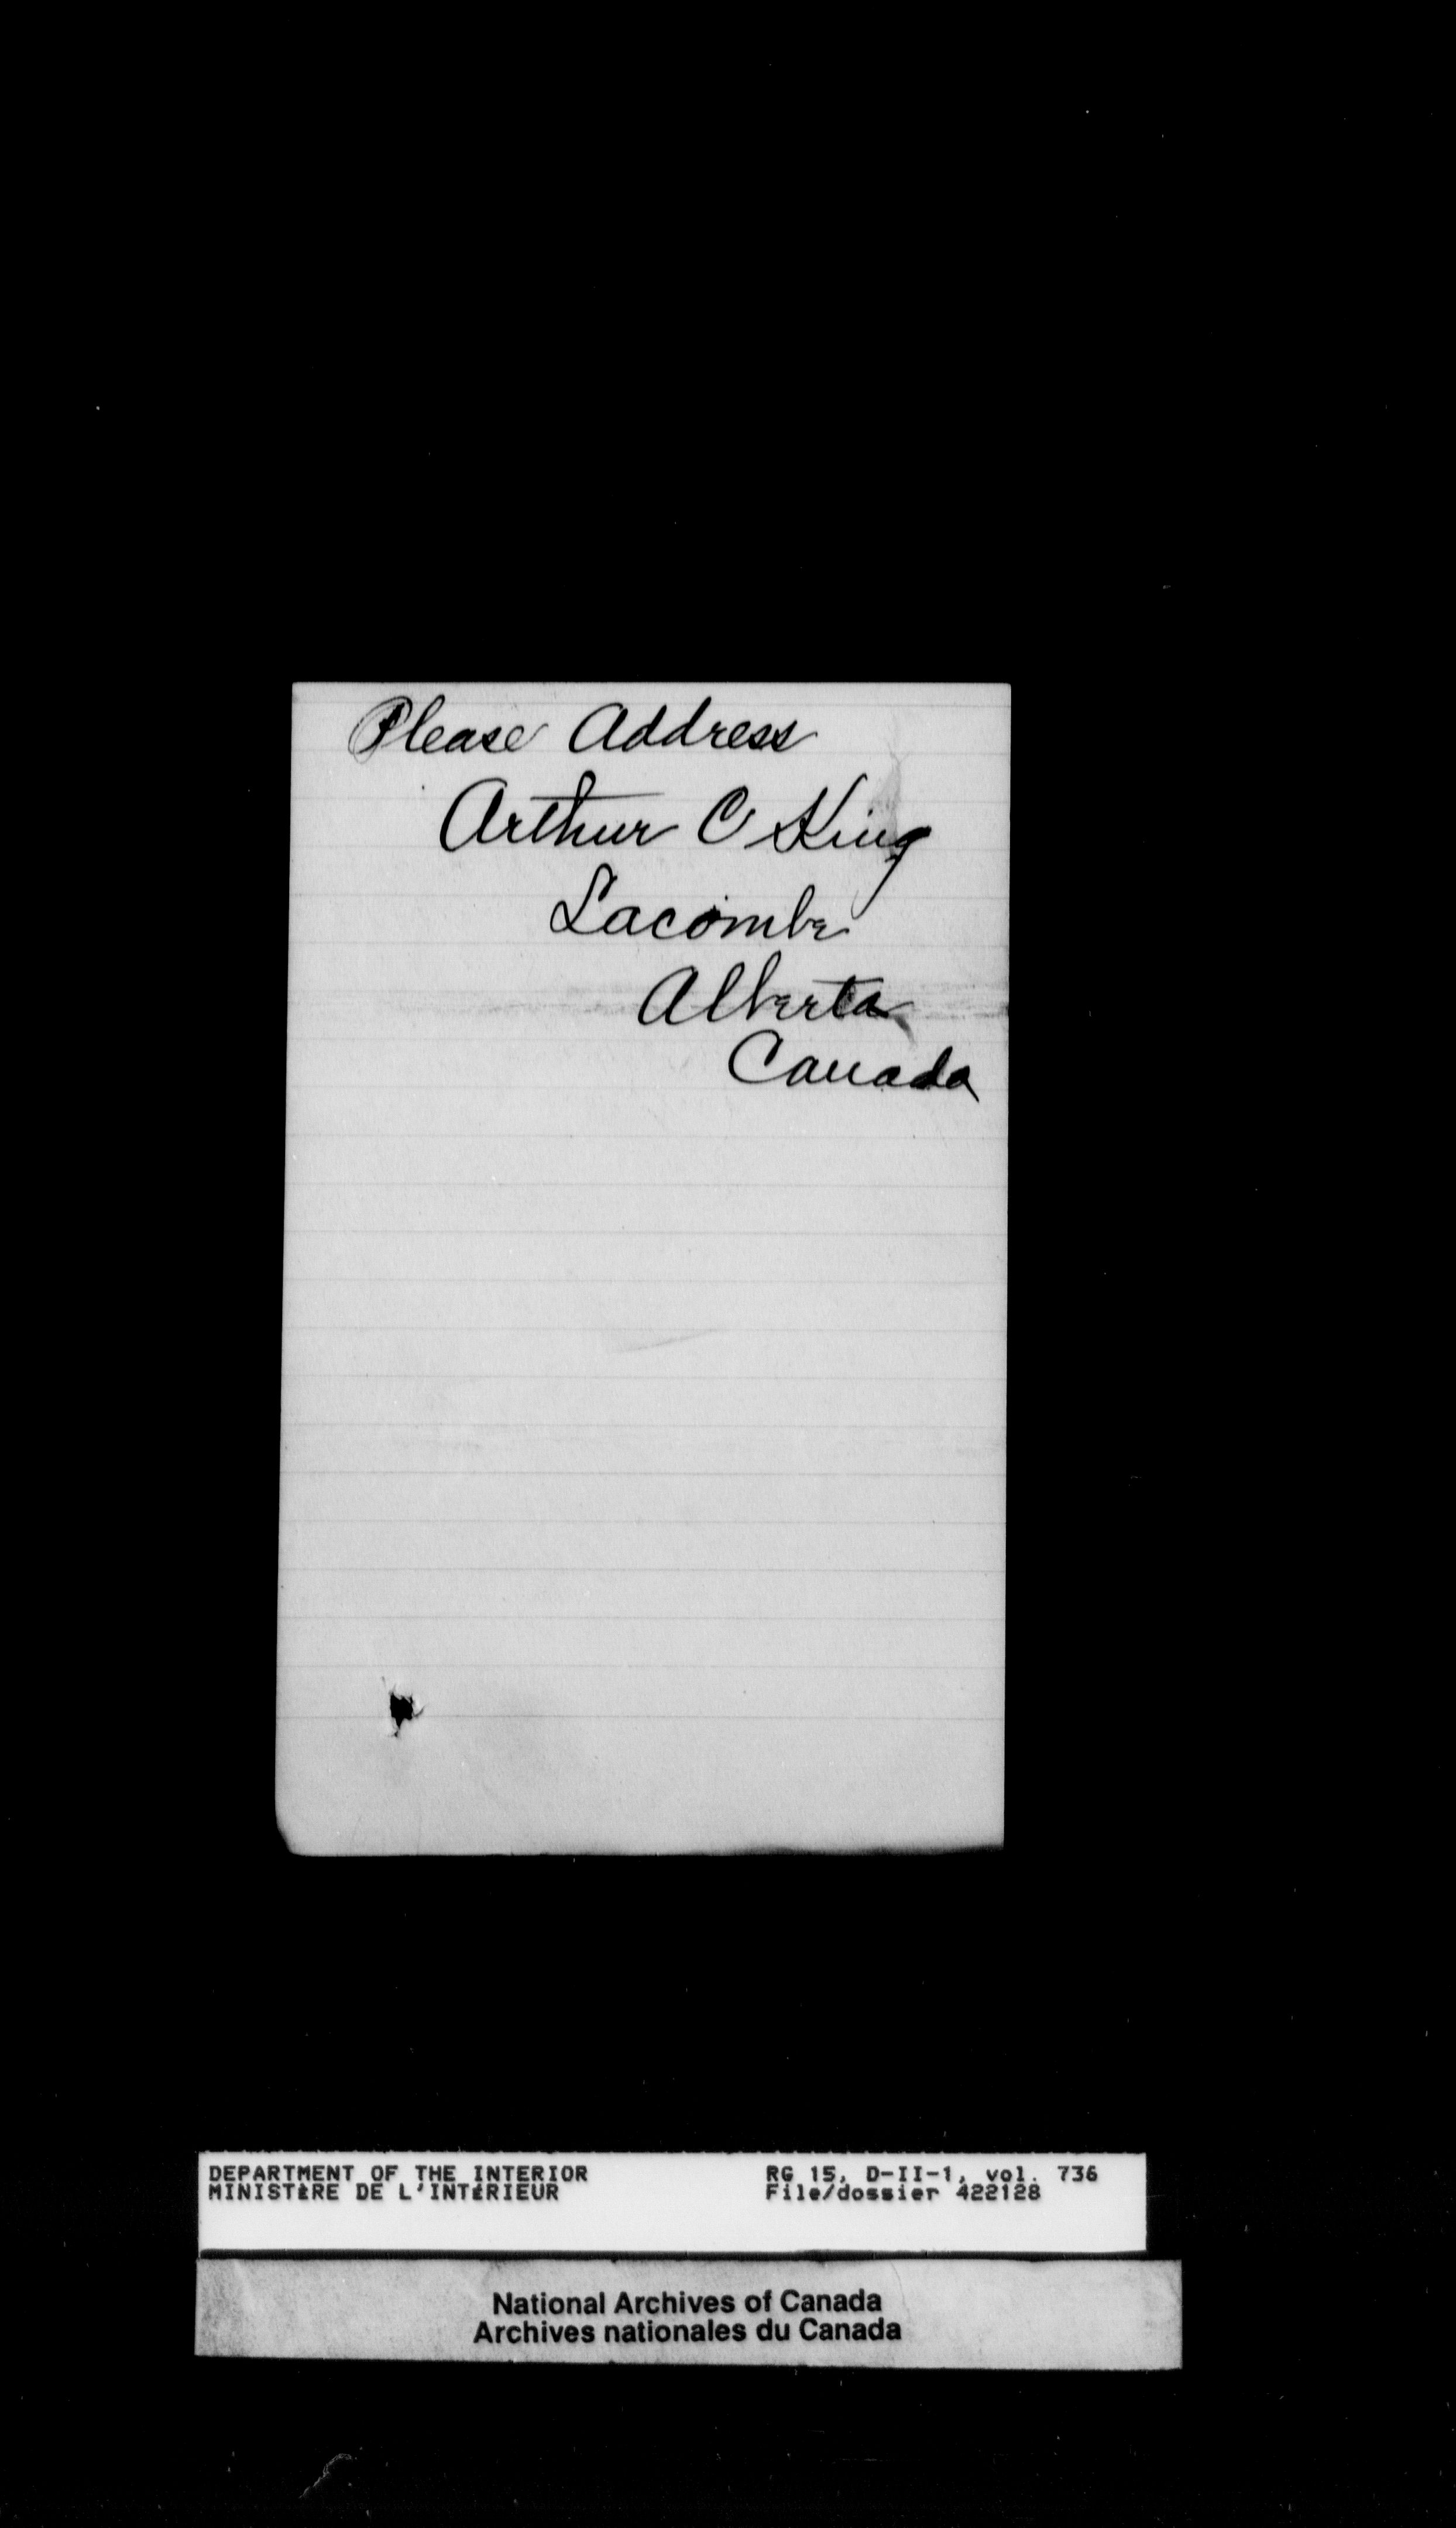 Please Address
Arthur C King
Lacombe
Alberta
Canada
DEPARTMENT OF THE INTERIOR
MINISTÈRE DE L'INTÉRIEUR
RG 15, D-II-1, vol. 736
File/dossier 422128
National Archives of Canada
Archives nationales du Canada